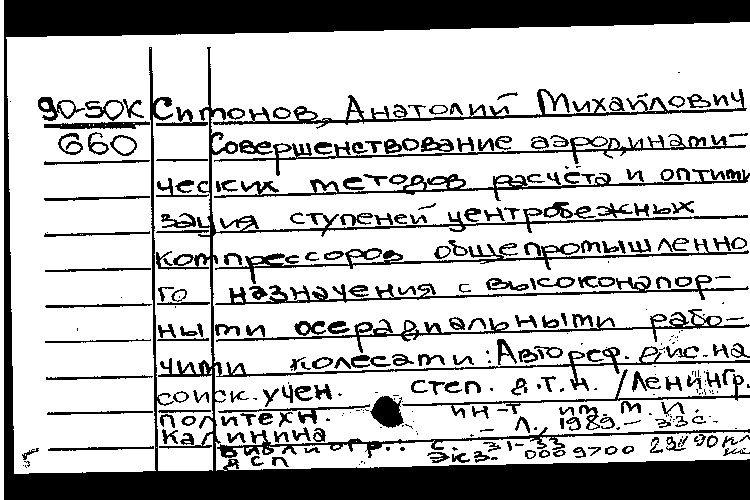 90-50К Симонов, Анатолий Михайлович
660 Совершенствование аэродинами-
ческих методов расчёта и оптими
зация ступеней центробежных
компрессоров общепромышленно
го назначения с высоконапор-
ными осерадиальными рабо-
чими колесами: Автореф. дис. на
соиск. учен. степ. д.т.н. / Ленингр.
политехн. ин-т им. М. И.
Калинина – Л., 1989. – 33с.
Библиогр.: с. 31-33
ДСП Экз. 0009700